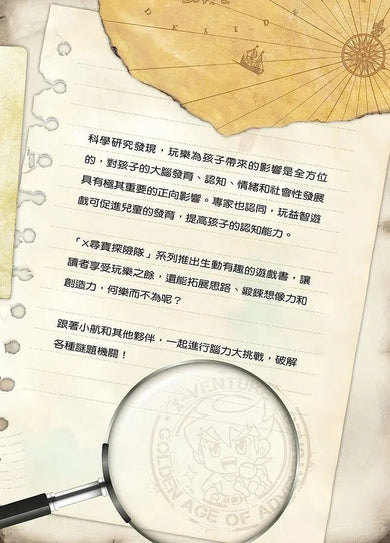 DESID
科學研究發現，玩樂為孩子帶來的影響是全方位
的，對孩子的大腦發育、認知、情緒和社會性發展
具有極其重要的正向影響。專家也認同，玩益智遊
戲可促進兒童的發育，提高孩子的認知能力。
「X尋寶探險隊」系列推出生動有趣的遊戲書，讓
讀者享受玩樂之餘，還能拓展思路、鍛鍊想像力和
創造力，何樂而不為呢？
跟著小航和其他夥伴，一起進行腦力大挑戰，破解
各種謎題機關！
X-VENTURE
GOLDEN AGE OF